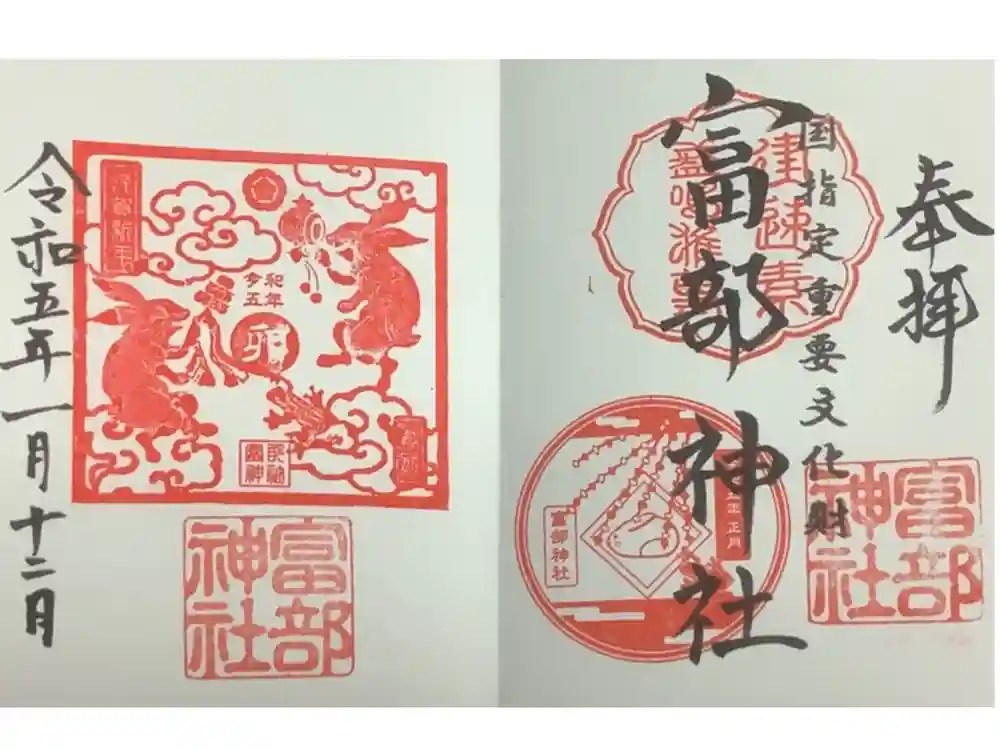 奉拝
国指定重要文化財
富部神社
建速素
正月
富部神社
富部神社
令和
五年
卯
富部神社
令和五年一月十二月